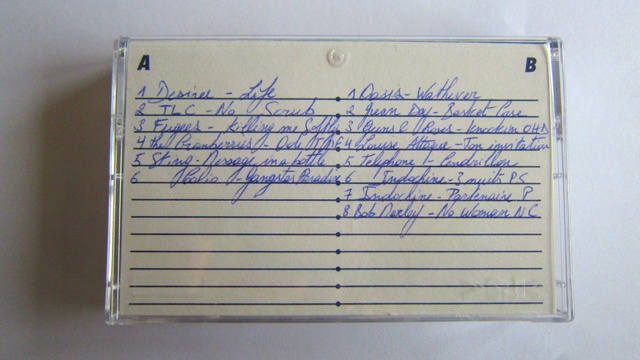 A
1 Desiree - Life
2 TLC - No Scrub
3 Fugees - Killing me Softly
4 the Cranberries - Ode
5 Sting - Message in a bottle
6 Coolio - gangstas Paradise
B
1 Oasis - Wathever
2 Green Day - Basket Case
3 Guns O Roses - Knockin OHD
4 Louise Attaque - Ton invitation
5 Telephone - Cendrillon
6 Indochine - 3 nuits PS
7 Indochine - Partenaire P
8 Bob Marley - No Woman NC